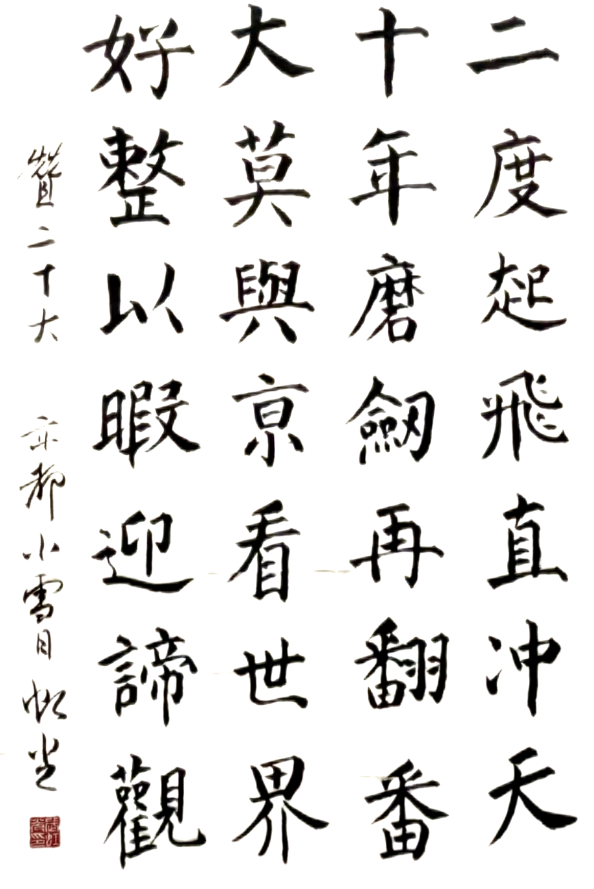 二度起飛直冲天
十年磨劒再翻番
大莫與亰看世界
好整以暇迎諦觀
贊二十大
京都小雪日